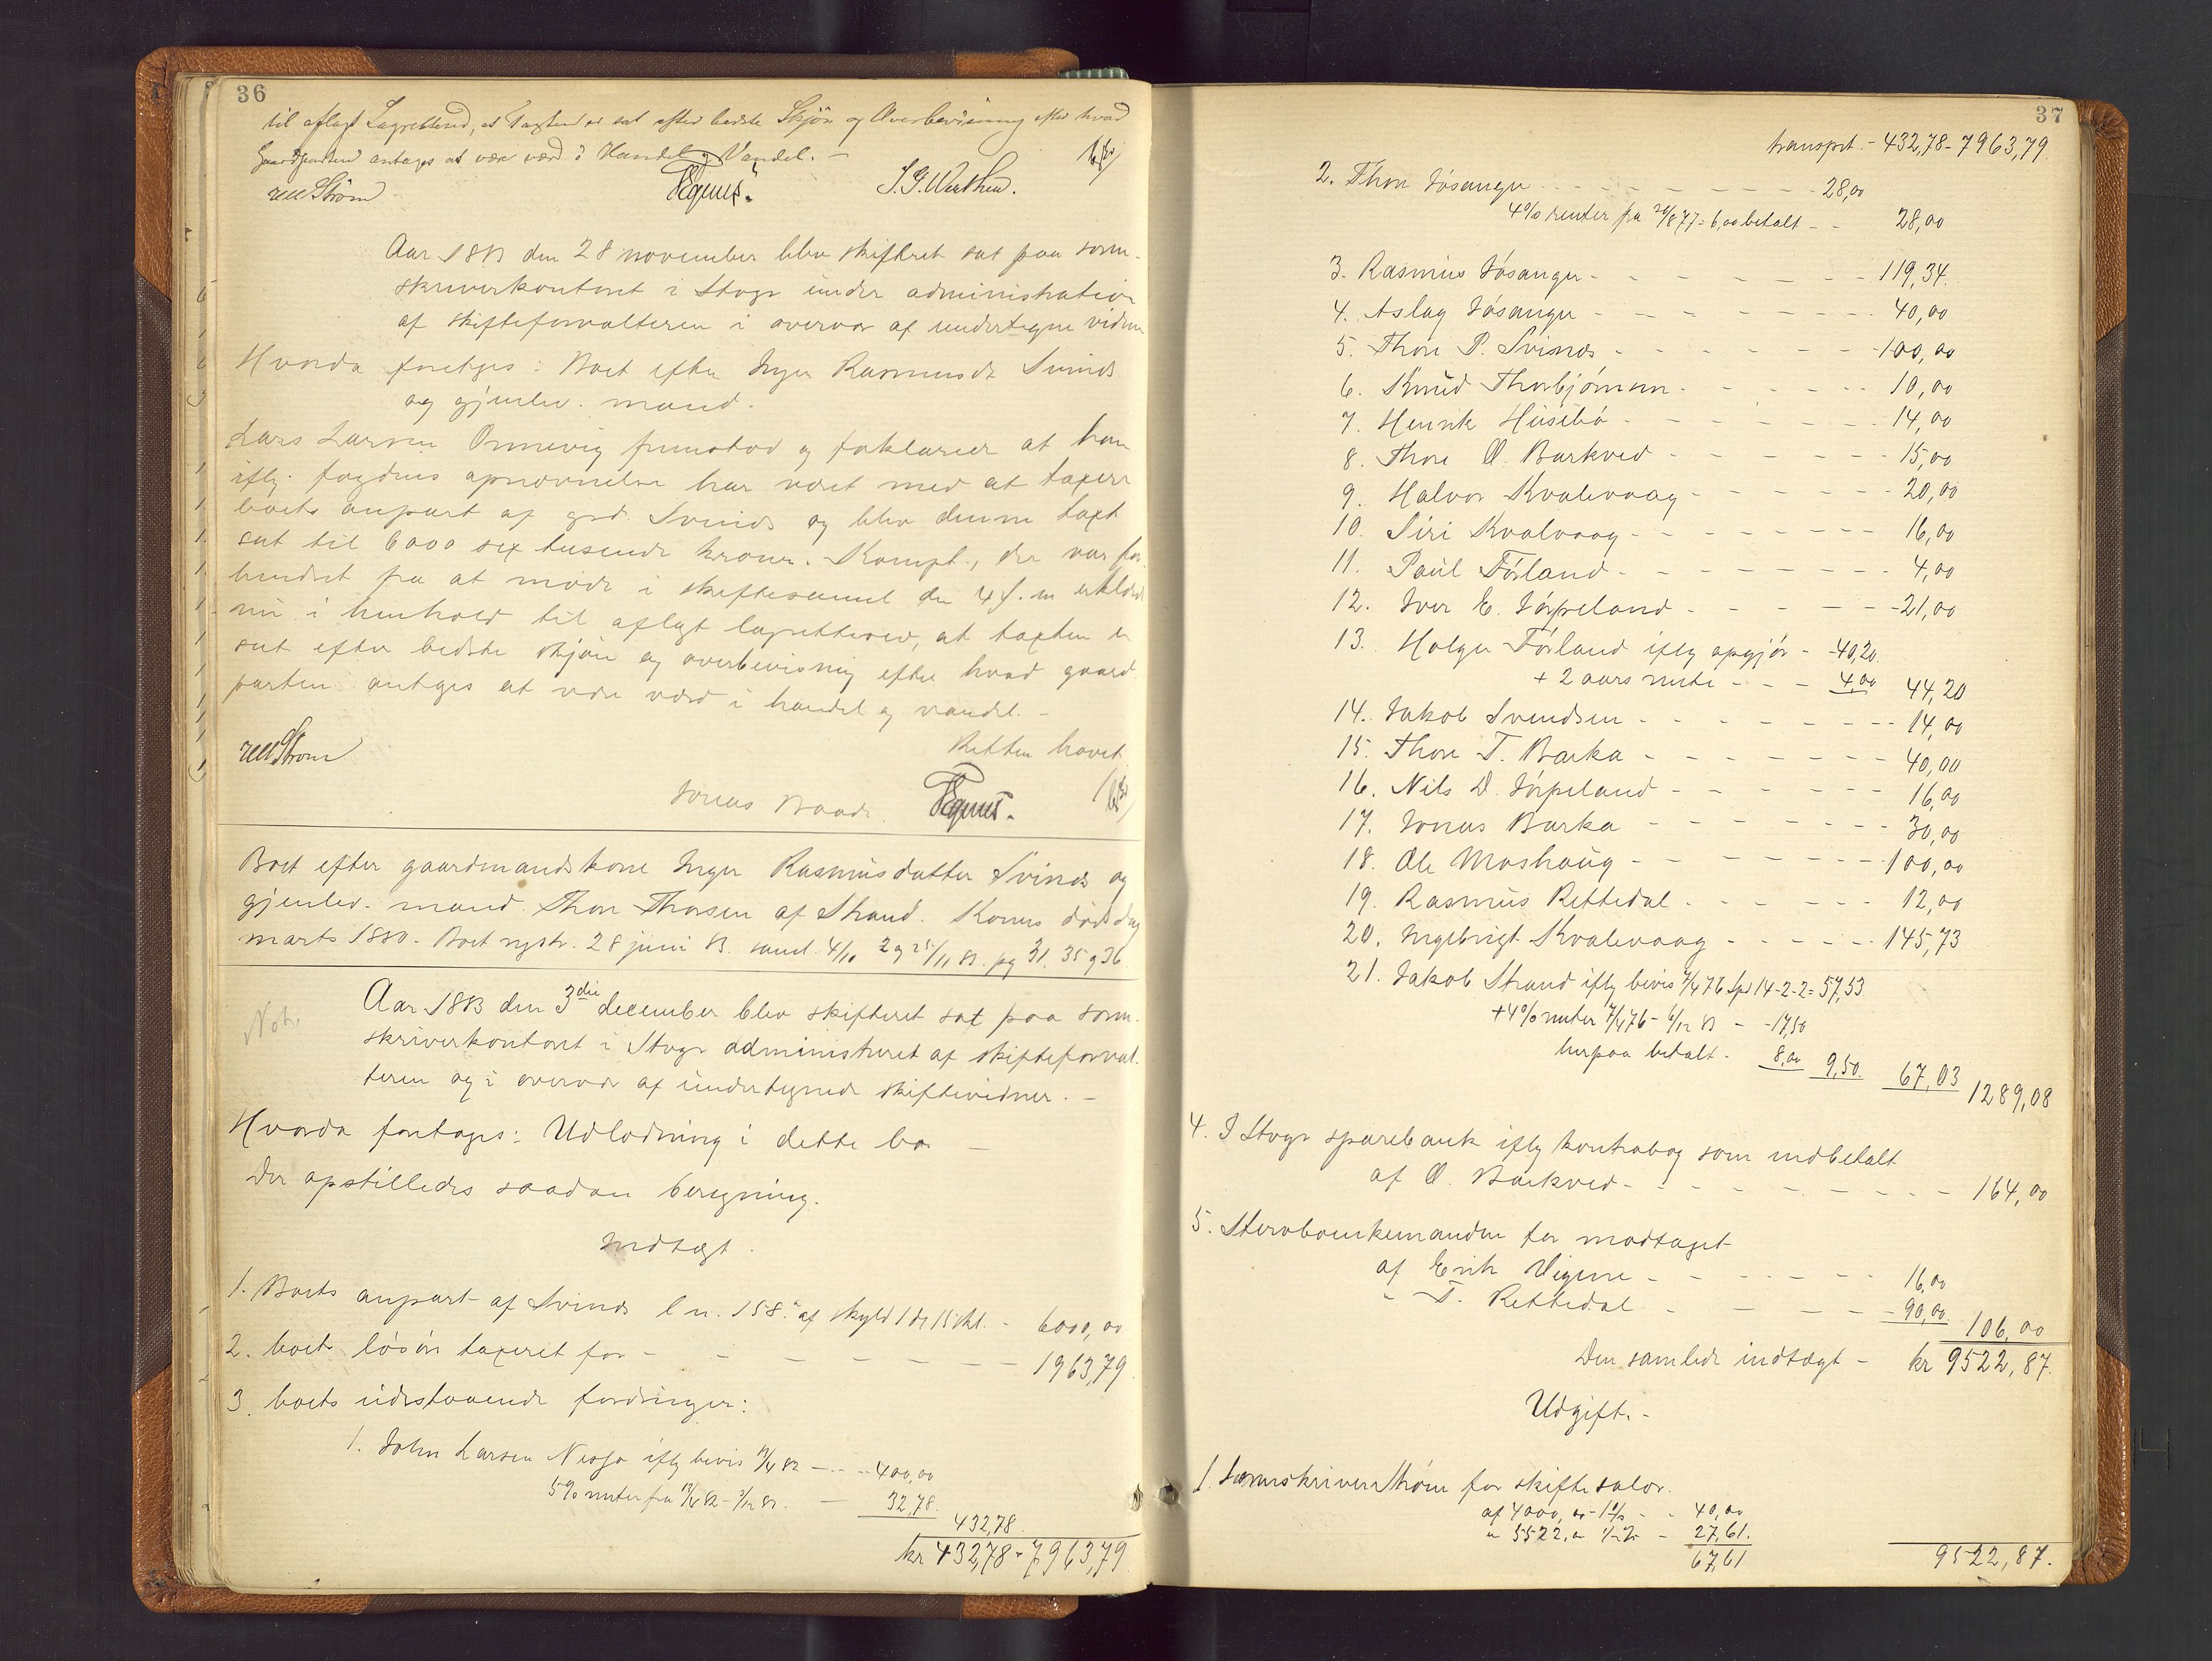 36
til aflagt Lagretteed, at Taxten er sat efter bedste Skjøn og Overbevisning efter hvad
Gaardparten antages at være værd i Handel og Vandel. —
Strøm
Aar 1883 den 28 november blev skifteret sat paa soren-
skriverkontoret i Stvgr under administration
af skifteforvalteren i overvær af undertegne vidner
Hvorda foretoges: Boet efter Inger Rasmusdr Svines
og gjenlev. mand.
Lars Larsen Ormevig fremstod og forklarer at han
iflg. fogdens opnævnelse har været med at taxere
boets anpart af grd Svines og blev denne taxt
sat til 6000 sex tusende kroner. Kompt., der var for-
hindret fra at møde i skiftesaml den 4 f. m erklærer
nu i henhold til aflagt lagretteed, at taxten er
sat efter bedste skjøn og overbevisnig efter hvad gaard
parten antages at være værd i handel og vandel. —
Retten hævet
Strøm
Jonas Baade.
Boet efter gaardmandskone Inger Rasmusdatter Svines og
gjenlev. mand Thore Thorsen af Strand. Konens dødsdag
marts 1880. Boet regstr. 28 juni 83. saml. 4/10 2 og 28/11 83. pg 31. 35 og 36
Not.
Aar 1883 den 3die december blev skifteret sat paa soren-
skriverkontoret i Stvgr administreret af skifteforval-
teren og i overvær af undertegnede skiftevidner. —
Hvorda foretoges: Udlodning i dette bo —
Der opstilledes saadan beregning.
Indtægt.
1. Boets anpart af Svines l n. 158 af skyld 1 dr 15 skl. - 6000,00
2. boets løsøre taxeret for - - - - - - 1963,79
3. boets udestaaende fordringer:
1. John Larsen Nessa iflg bevis 12/4 82 - - - 400,00
5% renter fra 12/4 82 - 3/12 83. - 32,78.
432,78.
kr 432,78 - 7963,79
37
transprt. - 432,78 - 7963,79.
2. Thore Jøsanger - - - - - - - 28,00
4% renter fra 20/8 77 = 6,00 betalt - - 28,00
3. Rasmus Jøsanger - - - - - - 119,34.
4. Aslag Jøsanger - - - - - - - 40,00
5. Thore P. Svines - - - - - - 100,00
6. Knud Thorbjørnsen - - - - - 10,00
7. Henrik Husebø - - - - - - 14,00
8. Thore O. Barkved - - - - - - 15,00
9. Halvor Kvalevaag - - - - - - 20,00
10. Siri Kvalvaag - - - - - - - 16,00
11. Paul Førland - - - - - - - - 4,00
12. Iver E. Jørpeland - - - - - - 21,00
13. Holger Førland iflg opgjør - - 40,20.
+ 2 aars rente - - - 4,00 44,20
14. Jakob Svendsen - - - - - - - 14,00
15. Thore T. Barka - - - - - - - 40,00
16. Nils D. Jørpeland - - - - - - 16,00
17. Jonas Barka - - - - - - - 30,00
18. Ole Moshaug - - - - - - - 100,00
19. Rasmus Rettedal - - - - - - 12,00
20. Ingebrigt Kvalevaag - - - - - - 145,73
21. Jakob Strand iflg bevis 7/4 76 Spd 14-2-2 = 57,53.
+ 4% renter 7/4 76 - 6/12 83 - - 17,50
herpaa betalt - 8,00 9,50. 67,03 1289,08
4. I Stvgr sparebank iflg kontrabog som indbetalt
af O. Barkved - - - - - - - - - 164,00
5. Stervboenkemanden for modtaget
af Erik Vigene - - - - - - 16,00
" T. Rettedal - - - - - 90,00. 106,00
Den samlede indtægt - kr 9522,87.
Udgift. -
1. Sorenskriver Strøm for skiftesalær.
af 4000,00 - 1% - - 40,00
" 5522,00 1/2% - 27,61.
67,61
9522,87.